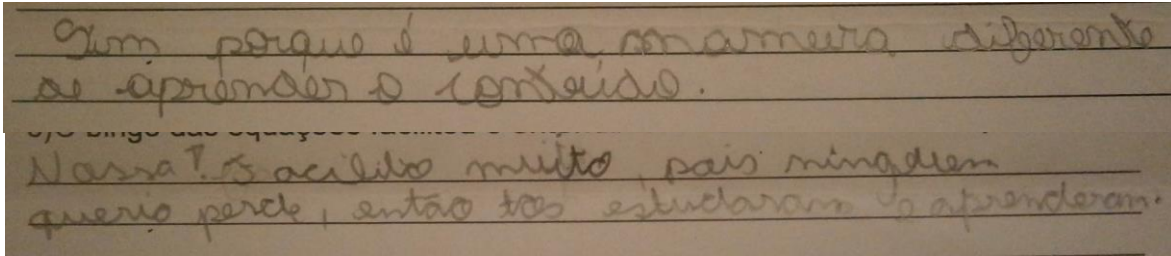 Sim porque é uma maneira diferente
de aprender o conteúdo.
o bingo das equações facilitou o
Nossa! Facilito muito, pois ninguém
queria perde, então tos estudaram e aprenderam.